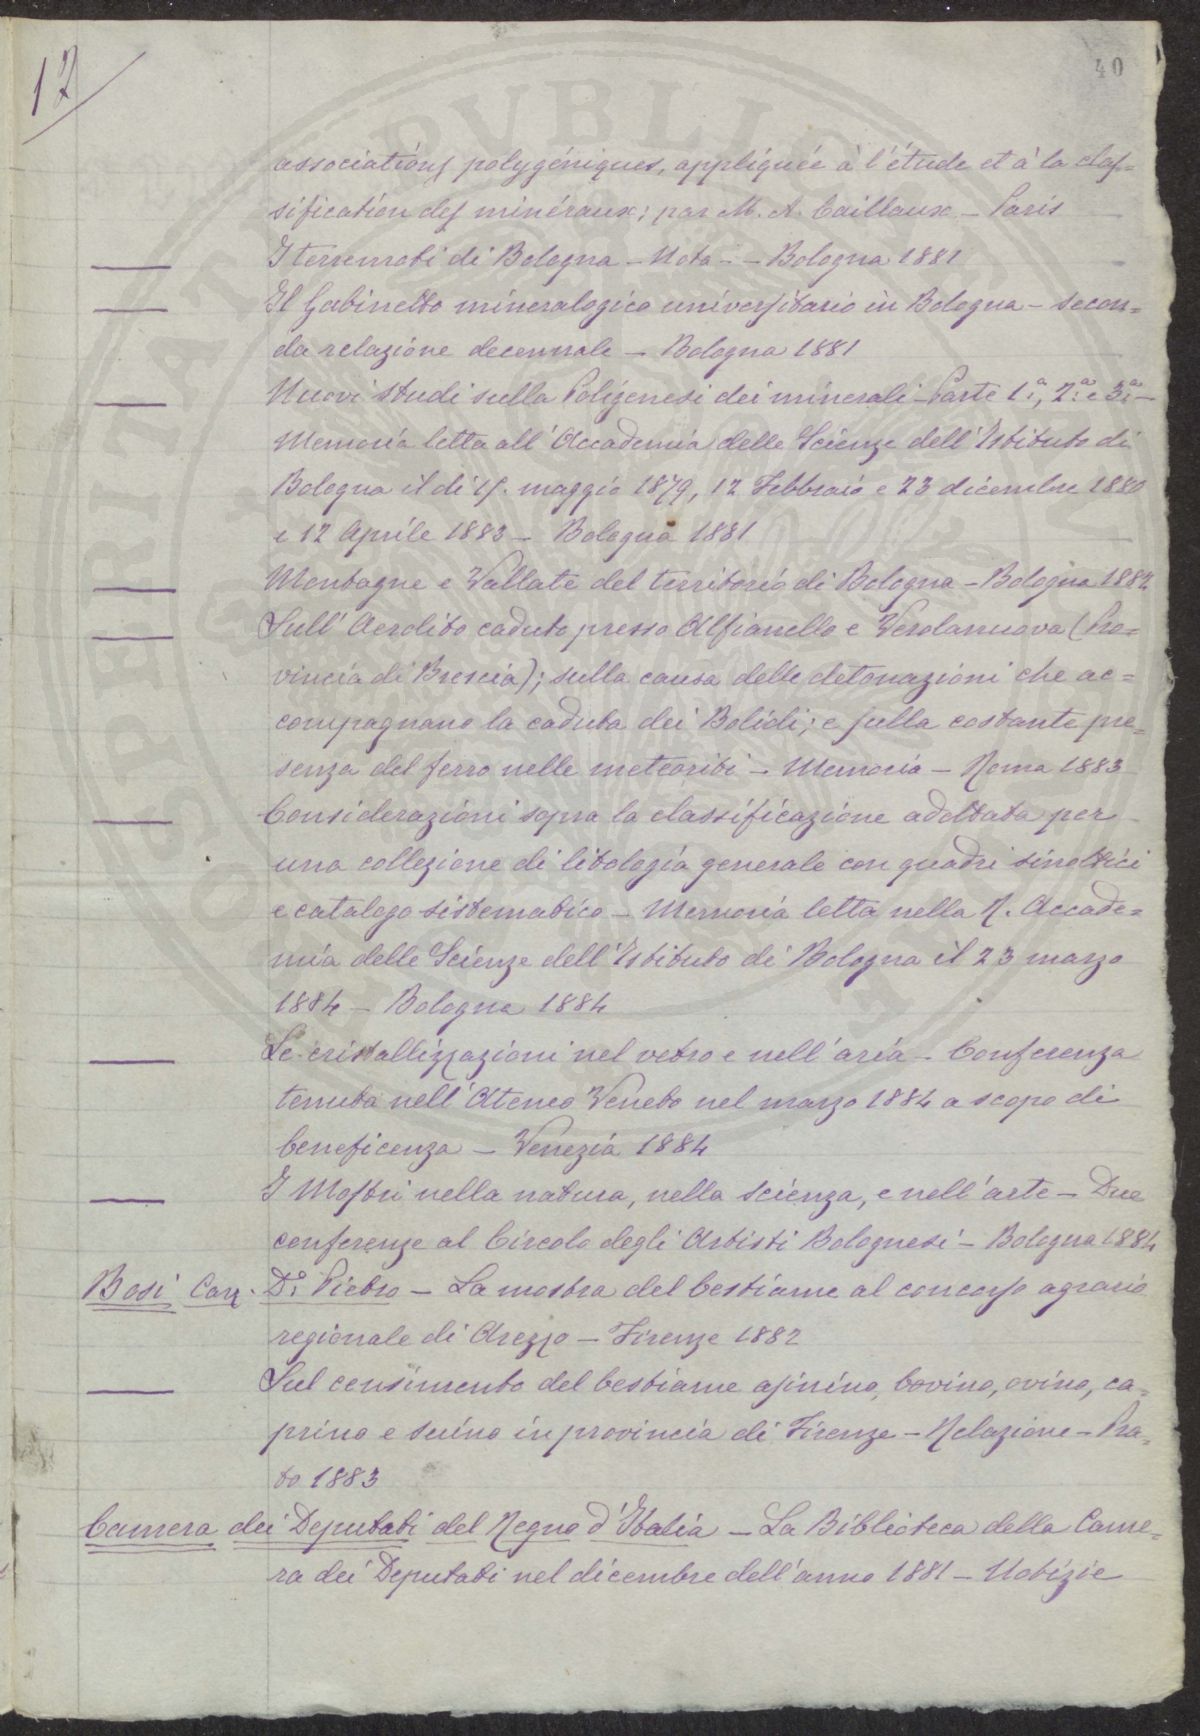 12
40
associations polygéniques, appliquée à l'étude et à la clas=
sification des minéraux; par M. A. Caillaux – Paris
I terremoti di Bologna – Nota – – Bologna 1881
Il Gabinetto mineralogico universitario in Bologna – secon=
da relazione decennale – Bologna 1881
Nuovi studi sulla Poligenesi dei minerali – Parte 1.ª, 2.ª e 3.ª –
Memoria letta all'Accademia delle Scienze dell'Istituto di
Bologna il dì 15. maggio 1879, 12 Febbraio e 23 dicembre 1880
e 12 Aprile 1883 – Bologna 1881
Montagne e Vallate del territorio di Bologna – Bologna 1882
Sull'Aerolito caduto presso Alfianello e Verolanuova (Pro=
vincia di Brescia); sulla causa delle detonazioni che ac=
compagnano la caduta dei Bolidi; e sulla costante pre=
senza del ferro nelle meteoriti – Memoria – Roma 1883
Considerazioni sopra la classificazione adottata per
una collezione di litologia generale con quadri sinottici
e catalogo sistematico – Memoria letta nella R. Accade=
mia delle Scienze dell'Istituto di Bologna il 23 marzo
1884 – Bologna 1884
Le cristallizzazioni nel vetro e nell'aria – Conferenza
tenuta nell'Ateneo Veneto nel marzo 1884 a scopo di
beneficenza – Venezia 1884
I Mostri nella natura, nella scienza, e nell'arte – Due
conferenze al Circolo degli Artisti Bolognesi – Bologna 1884
Bosi Cav. D.r Pietro – La mostra del bestiame al concorso agrario
regionale di Arezzo – Firenze 1882
Sul censimento del bestiame asinino, bovino, ovino, ca=
prino e suino in provincia di Firenze – Relazione – Pra=
to 1883
Camera dei Deputati del Regno d'Italia – La Biblioteca della Came=
ra dei Deputati nel dicembre dell'anno 1881 – Notizie